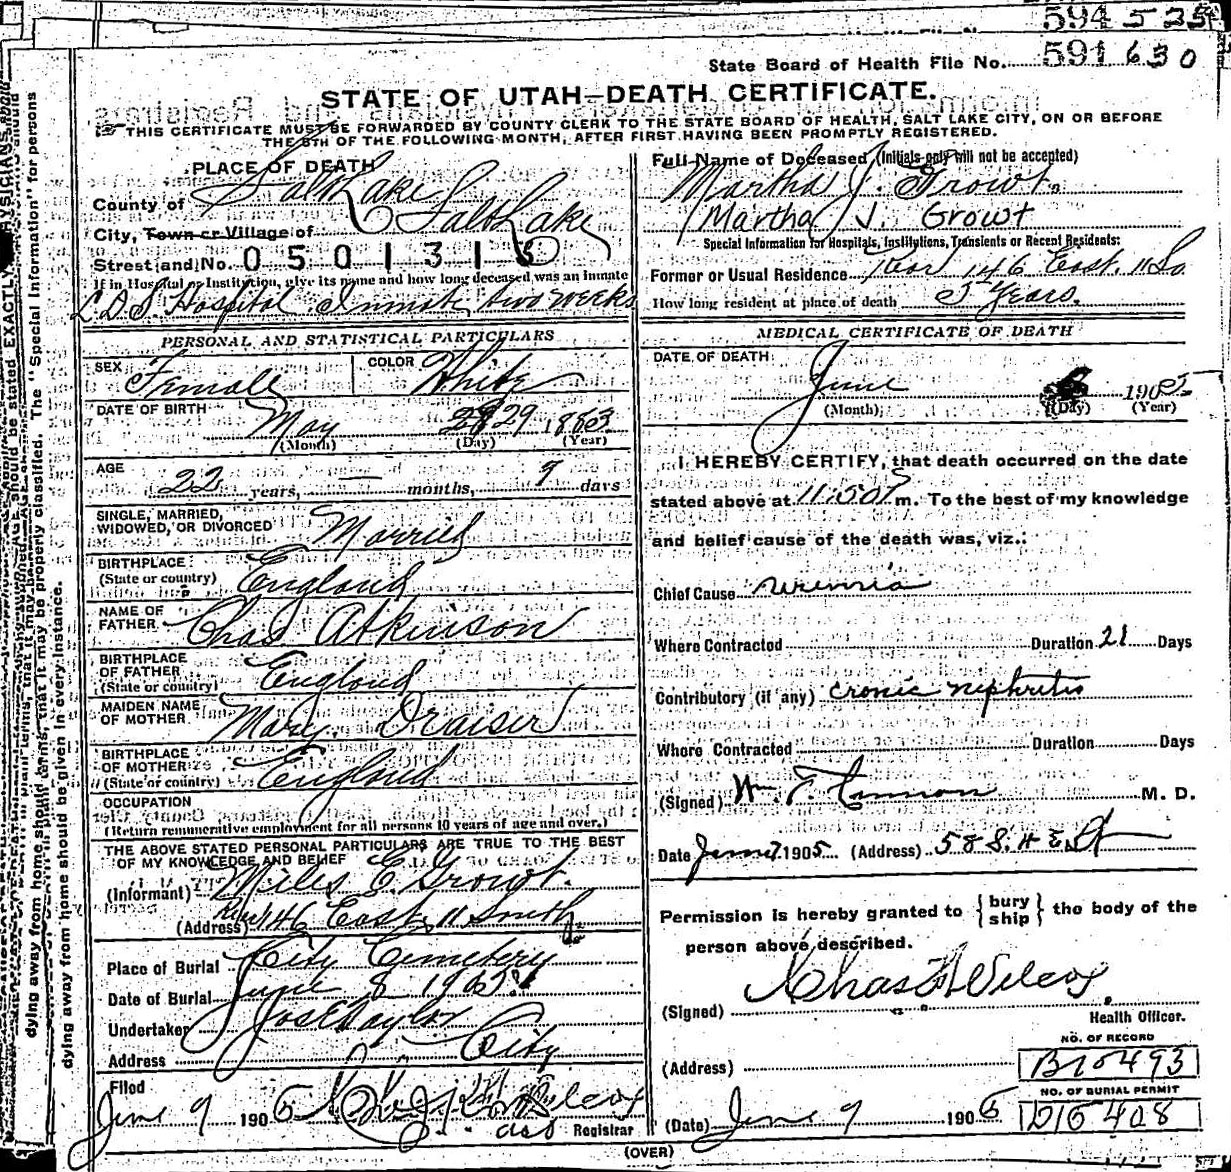 594 535
State Board of Health File No. 591 630
STATE OF UTAH—DEATH CERTIFICATE.
THIS CERTIFICATE MUST BE FORWARDED BY COUNTY CLERK TO THE STATE BOARD OF HEALTH, SALT LAKE CITY, ON OR BEFORE
THE 5TH OF THE FOLLOWING MONTH, AFTER FIRST HAVING BEEN PROMPTLY REGISTERED.
PLACE OF DEATH
County of Salt Lake
City, Town or Village of Salt Lake
Street and No. 0501318
If in Hospital or Institution, give its name and how long deceased was an inmate
L.D.S. Hospital Inmate two weeks
PERSONAL AND STATISTICAL PARTICULARS
SEX Female COLOR White
DATE OF BIRTH May 28 29 1883
(Month) (Day) (Year)
AGE 22 years, — months, 9 days
SINGLE, MARRIED,
WIDOWED, OR DIVORCED Married
BIRTHPLACE
(State or country) England
NAME OF
FATHER Chas Atkinson
BIRTHPLACE
OF FATHER
(State or country) England
MAIDEN NAME
OF MOTHER Mary Draiser
BIRTHPLACE
OF MOTHER
(State or country) England
OCCUPATION
(Return remunerative employment for all persons 10 years of age and over.)
THE ABOVE STATED PERSONAL PARTICULARS ARE TRUE TO THE BEST
OF MY KNOWLEDGE AND BELIEF
(Informant) Miles E. Growt.
(Address) Rear 146 East 11 South
Place of Burial City Cemetery
Date of Burial June 8 1905
Undertaker Jos E Taylor
Address City
Filed
June 9 1905 Wilcox
asst Registrar
Full Name of Deceased (Initials only will not be accepted)
Martha J. Growt
Martha J. Growt
Special Information for Hospitals, Institutions, Transients or Recent Residents:
Former or Usual Residence Rear 146 East. 11 So
How long resident at place of death 5 Years.
MEDICAL CERTIFICATE OF DEATH
DATE OF DEATH: June 1905
(Month) (Day) (Year)
I HEREBY CERTIFY, that death occurred on the date
stated above at 11:50 P m. To the best of my knowledge
and belief cause of the death was, viz.:
Chief Cause uremia
Where Contracted Duration 21 Days
Contributory (if any) cronic nephritis
Where Contracted Duration Days
(Signed) Wm. F. Cannon M. D.
Date June 7 1905 (Address) 58 S. H E St
Permission is hereby granted to { bury ship } the body of the
person above described.
(Signed) Chas F Wilcox.
Health Officer.
NO. OF RECORD
(Address) B10493
NO. OF BURIAL PERMIT
(Date) June 9 1905 D10408
(OVER)
dying away from home should be given in every instance.